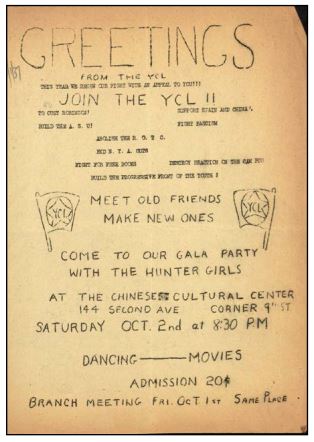 GREETINGS
FROM THE YCL
THIS YEAR WE BEGIN OUR FIGHT WITH AN APPEAL TO YOU!!!
JOIN THE YCL !!
TO OUST ROBINSON! SUPPORT SPAIN AND CHINA!
BUILD THE A. S. U! FIGHT FASCISM
ABOLISH THE R. O. T. C.
END N. Y. A. CUTS
FIGHT FOR FREE BOOKS DESTROY REACTION ON THE CAMPUS
BUILD THE PROGRESSIVE FRONT OF THE YOUTH !
YCL
YCL
MEET OLD FRIENDS
MAKE NEW ONES
COME TO OUR GALA PARTY
WITH THE HUNTER GIRLS
AT THE CHINESE CULTURAL CENTER
144 SECOND AVE CORNER 9th ST
SATURDAY OCT. 2nd at 8:30 PM
DANCING — MOVIES
ADMISSION 20¢
BRANCH MEETING FRI. OCT 1st SAME PLACE